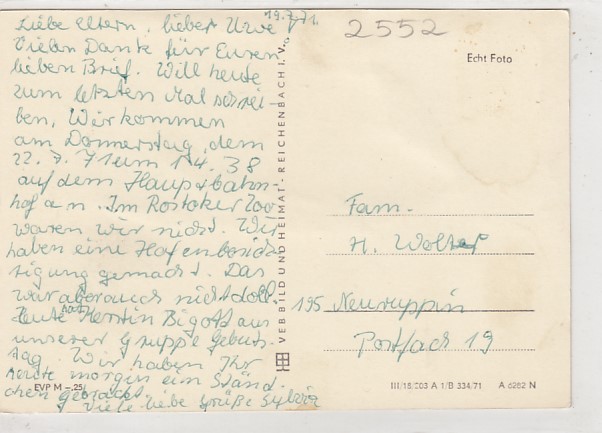 19.7.71
Liebe Eltern, lieber Uwe
Vielen Dank für Euren
lieben Brief. Will heute
zum letzten Mal schrei-
ben. Wir kommen
am Donnerstag, dem
22. 7. 71 um 14.38
auf dem Hauptbahn-
hof an. Im Rostoker Zoo
waren wir nicht. Wir
haben eine Hafenbesich-
tigung gemacht. Das
war aber auch nicht doll.
Heute hat Kerstin Bigott aus
unserer Gruppe Geburts-
tag. Wir haben Ihr
heute morgin ein Ständ-
chen gebracht.
Viele liebe Grüße Sylvia
EVP M –,25
VEB BILD UND HEIMAT · REICHENBACH I. V.
2552
Echt Foto
Fam.
H. Wolter
195 Neuruppin
Postfach 19
III/18/203 A 1/B 334/71 A 6262 N